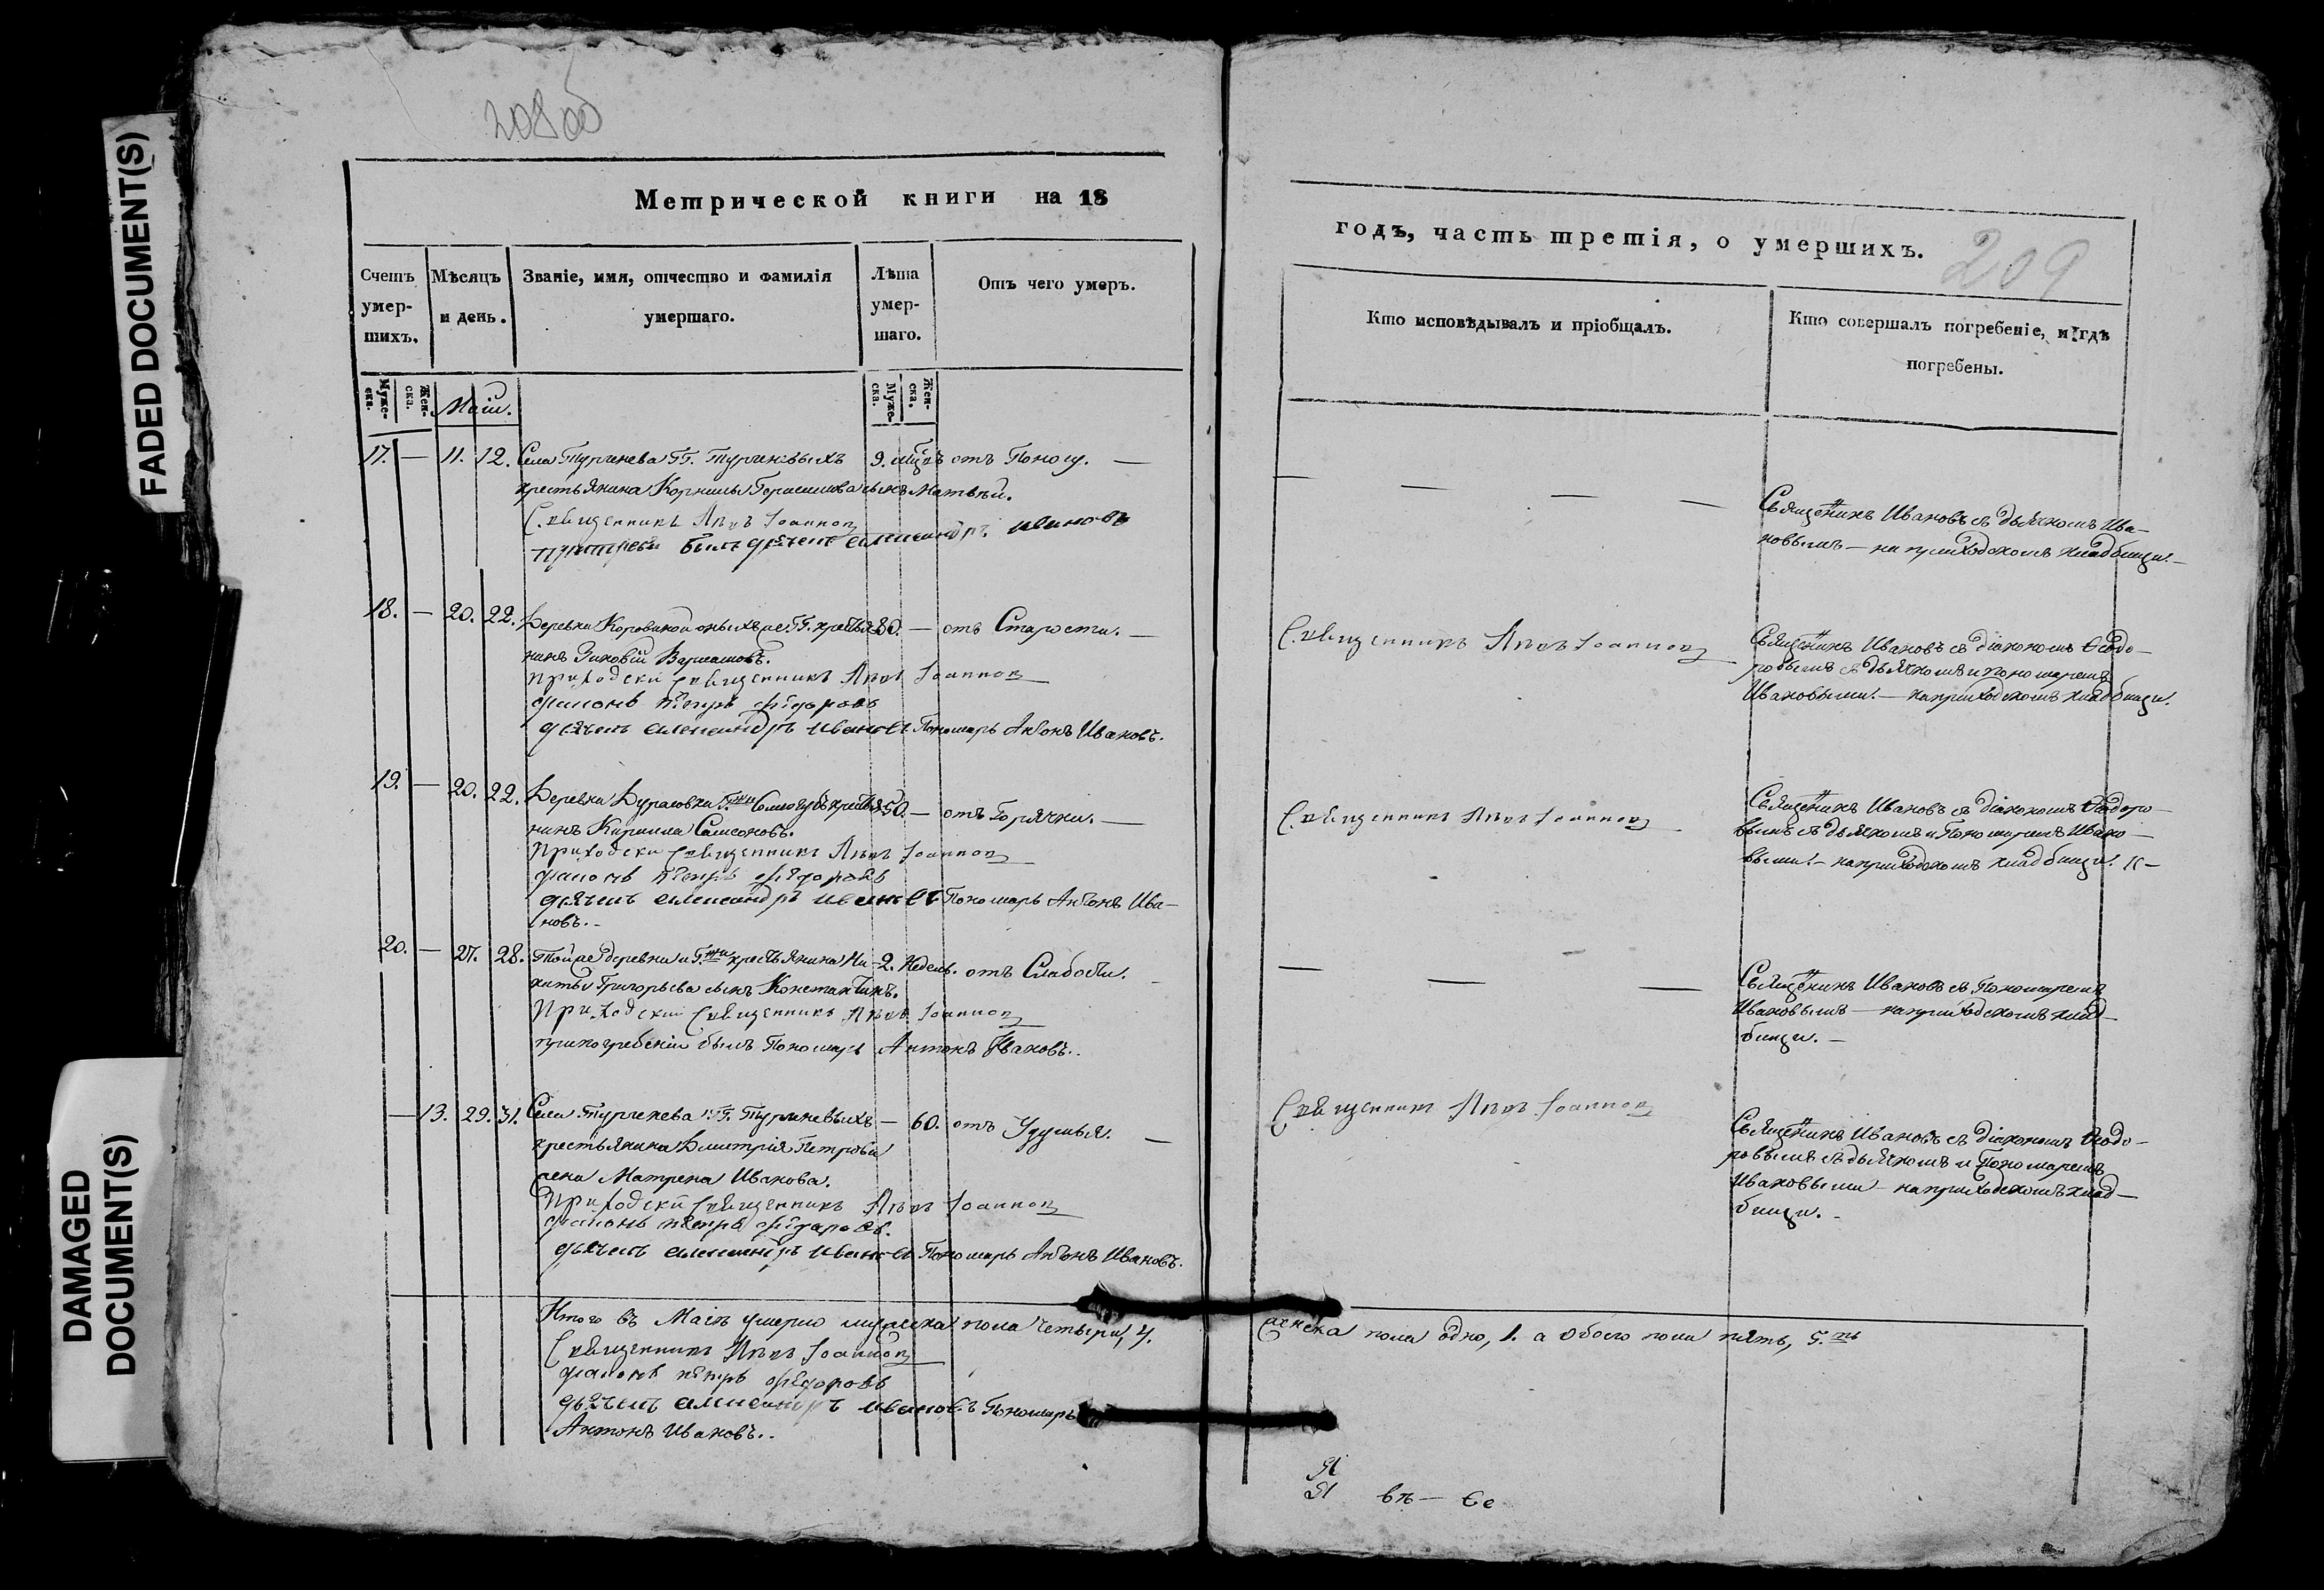 FADED DOCUMENT(S)
DAMAGED
DOCUMENT(S)
208 об
Метрической книги на 18
Счетъ умер-шихъ.
Мѣсяцъ и день.
Званіе, имя, отчество и фамилія умершаго.
Лѣта умер-шаго.
Отъ чего умеръ.
Муже-ска.
Жен-ска.
Маіи.
Муже-ска.
Жен-ска.
17. — 11. 12. Села Тургенева ГГ. Тургеневыхъ 9. мцовъ отъ Поносу. —
крестьянина Корнилы Герасимова сынъ Матвѣй.
Священникъ Левъ Іоанновъ
при погребеніи былъ дьячекъ александръ ивановъ
18. — 20. 22. Деревни Коровиной оныхъ же ГГ. крестья- 80. — отъ Старости. —
нинъ Зиновій Варламовъ.
приходскій священникъ Левъ Іоанновъ
диаконъ петръ федоровъ
дьячекъ александръ ивановъ Пономарь Антонъ Ивановъ.
19. — 20. 22. Деревни Дурасовки Гжи крестья- 50. — отъ Горячки. —
нинъ Кирилла Самсоновъ.
приходскій священникъ Левъ Іоанновъ
диаконъ петръ федоровъ
дьячекъ александръ ивановъ Пономарь Антонъ Ива-
новъ. -
20. — 27. 28. Той же деревни и Гжи крестьянина Ни- 2. недель. отъ Слабости. —
киты Григорьева сынъ Константинъ.
приходскій священникъ Левъ Іоанновъ
при погребеніи былъ Пономарь Антонъ Ивановъ..
— 13. 29. 31. Села Тургенева ГГ. Тургеневыхъ — 60. отъ Удушья. —
крестьянина Дмитрія Петрова
жена Матрена Иванова.
приходскій священникъ Левъ Іоанновъ
диаконъ петръ федоровъ.
дьячекъ александръ ивановъ Пономарь Антонъ Ивановъ.
Итого въ Маіѣ умерло мужеска пола четыри, 4.
Священникъ Левъ Іоанновъ
диаконъ петръ федоровъ
дьячекъ александръ ивановъ Пономарь
Антонъ Ивановъ..
годъ, часть третія, о умершихъ.
209
Кто исповѣдывалъ и пріобщалъ.
Кто совершалъ погребеніе, и гдѣ погребены.
— — — —
Священникъ Ивановъ съ дьячкомъ Ива-
новымъ — на приходскомъ кладбищи. —
Священникъ Левъ Іоанновъ
Священникъ Ивановъ съ діакономъ Ѳеодо-
ровымъ съ дьячкомъ и пономаремъ
Ивановыми. — на приходскомъ кладбищи.
Священникъ Левъ Іоанновъ
Священникъ Ивановъ съ діакономъ Ѳеодоро-
вымъ съ дьячкомъ и Пономаремъ Ивано-
выми. — на приходскомъ кладбищи.
— — —
Священникъ Ивановъ съ Пономаремъ
Ивановымъ — на приходскомъ клад-
бищи. —
Священникъ Левъ Іоанновъ
Священникъ Ивановъ съ діакономъ Ѳеодо-
ровымъ съ дьячкомъ и Пономаремъ
Ивановыми — на приходскомъ клад-
бищи. -
женска пола одно, 1. а обоего пола пять, 5.ть